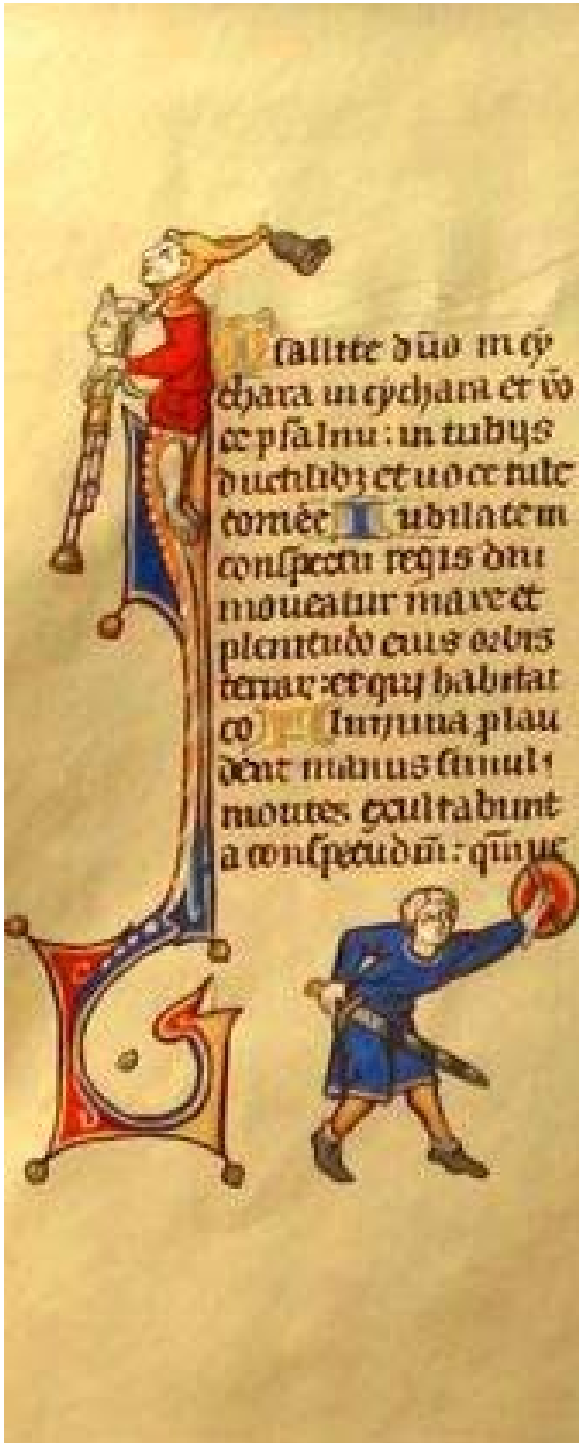 Psallite dn̄o in cy
thara in cythara et vo
ce psalmi : in tubijs
ductilibꝫ et uoce tube
cornee Iubilate in
conspectu regis dn̄i
moueatur mare et
plenitudo eius orbis
terraꝝ : et qui habitāt
eo Flumina plau
dent manus simul :
montes exultabunt
a conspectu dn̄i : qm̄ ue